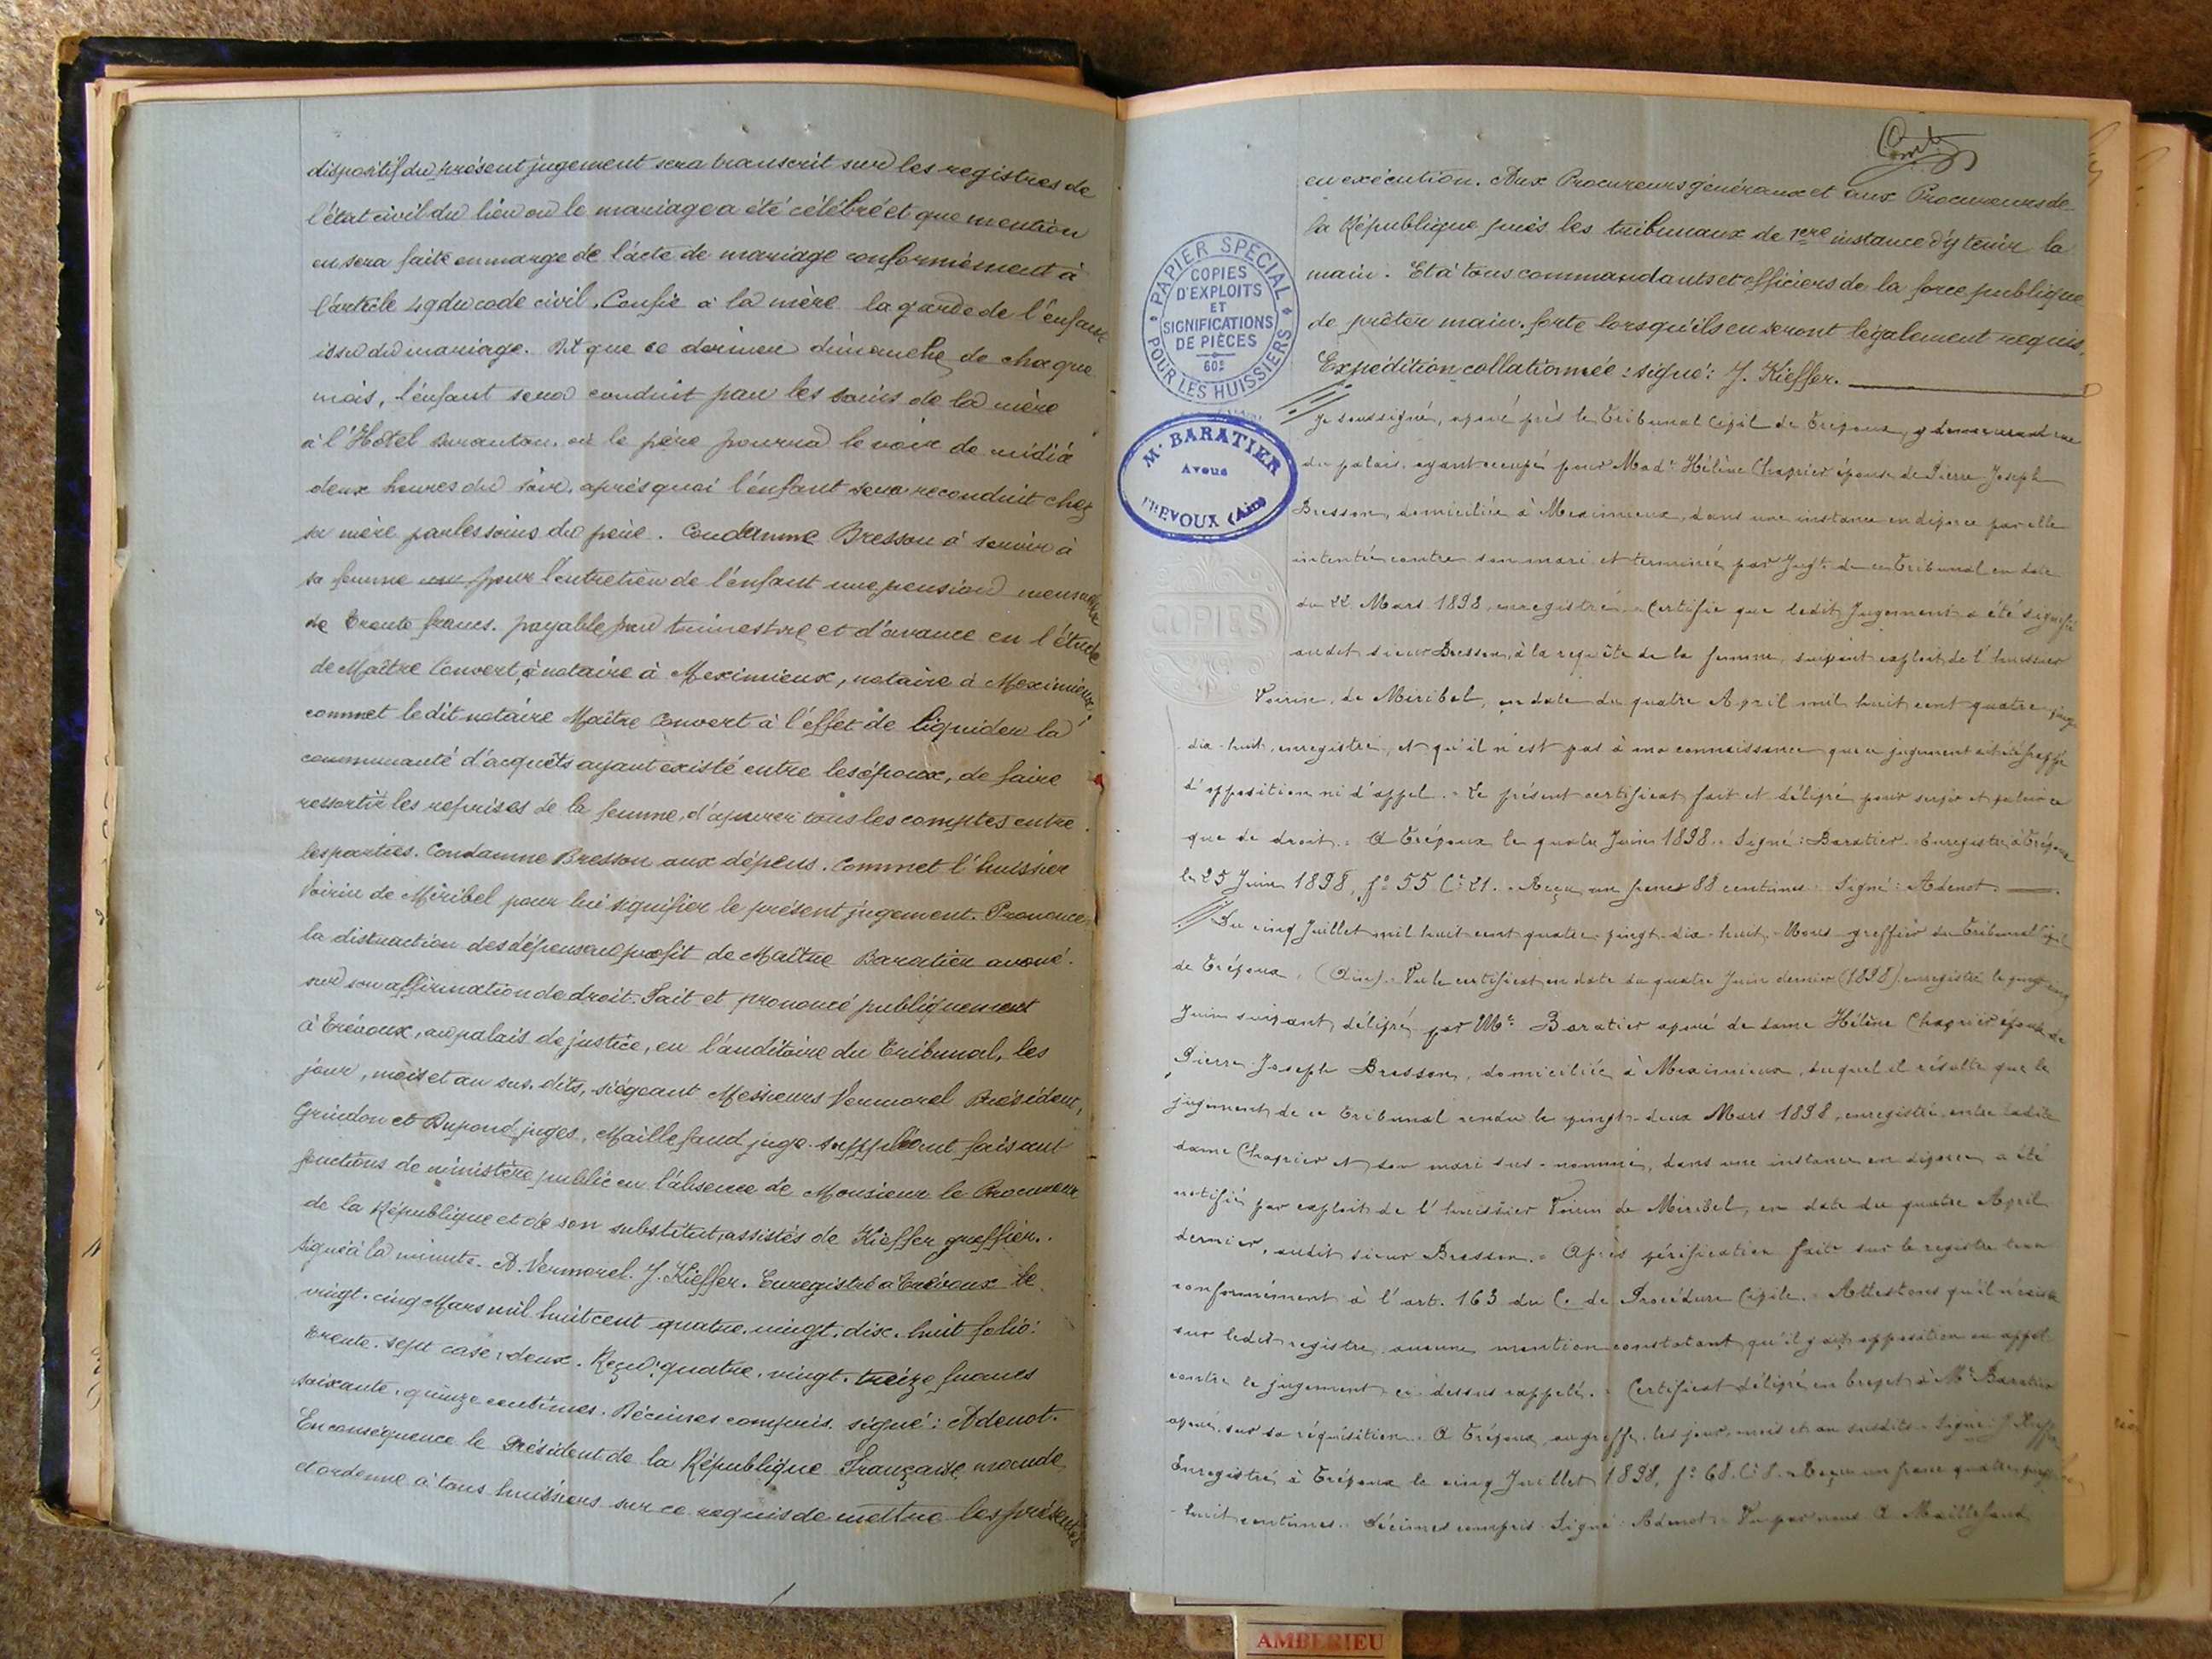 dispositif du présent jugement sera transcrit sur les registres de
l'état civil du lieu où le mariage a été célébré et que mention
en sera faite en marge de l'acte de mariage conformément à
l'article 49 du code civil. Confie à la mère la garde de l'enfant
issu du mariage. Dit que ce dernier dimanche de chaque
mois, l'enfant sera conduit par les soins de la mère
à l'Hôtel où le père pourra le voir de midi à
deux heures du soir, après quoi l'enfant sera reconduit chez
sa mère par les soins du père. Condamne Bresson à servir à
sa femme pour l'entretien de l'enfant une pension mensuelle
de trente francs. payable par trimestre et d'avance en l'étude
de Maître Convert, notaire à Meximieux, notaire à Meximieux,
commet ledit notaire Maître Convert à l'effet de liquider la
communauté d'acquêts ayant existé entre les époux, de faire
ressortir les reprises de la femme, d'apurer tous les comptes entre
les parties. Condamne Bresson aux dépens. Commet l'huissier
Voirin de Miribel pour lui signifier le présent jugement. Prononce
la distraction des dépens au profit de Maître Baratier avoué.
sur son affirmation de droit. Fait et prononcé publiquement
à Trévoux, au palais de justice, en l'auditoire du Tribunal, les
jour, mois et an sus-dits, siégeant Messieurs Vermorel Président,
Grindon et Dupond juges, Maillefaud juge suppléant faisant
fonctions de ministère public en l'absence de Monsieur le Procureur
de la République et de son substitut, assistés de Kieffer greffier.
Signé à la minute. A. Vermorel. J. Kieffer. Enregistré à Trévoux le
vingt-cinq Mars mil huit cent quatre-vingt-dix-huit folio:
trente-sept case: deux. Reçu: quatre-vingt-treize francs
soixante-quinze centimes. Décimes compris. signé: Adenot.
En conséquence le Président de la République Française mande
et ordonne à tous huissiers sur ce requis de mettre les présentes
en exécution. Aux Procureurs généraux et aux Procureurs de
la République près les tribunaux de 1ère instance d'y tenir la
main. Et à tous commandants et officiers de la force publique
de prêter main-forte lorsqu'ils en seront légalement requis.
Expédition collationnée: signé: J. Kieffer.
PAPIER SPÉCIAL
COPIES
D'EXPLOITS
ET
SIGNIFICATIONS
DE PIÈCES
60c
POUR LES HUISSIERS
Mr BARATIER
Avoué
TREVOUX (Ain)
COPIES
Je soussigné, avoué près le Tribunal Civil de Trévoux, y demeurant rue
du palais, ayant occupé pour Made Hélène Chaprier épouse de Pierre Joseph
Bresson, domiciliée à Meximieux, dans une instance en divorce par elle
intentée contre son mari et terminée par Jugt de ce Tribunal en date
du 22 Mars 1898 enregistré. Certifie que ledit Jugement a été signifié
audit sieur Bresson, à la requête de la femme, suivant exploit de l'huissier
Voirin, de Miribel, en date du quatre Avril mil huit cent quatre vingt
dix-huit, enregistré, et qu'il n'est pas à ma connaissance que ce jugement ait été frappé
d'opposition ni d'appel. Le présent certificat fait et délivré pour servir et valoir ce
que de droit. A Trévoux le quatre Juin 1898. Signé: Baratier. Enregistré à Trévoux
le 25 Juin 1898, f° 55 C° 21. Reçu un franc 88 centimes. Signé: Adenot.
Du cinq Juillet mil huit cent quatre-vingt-dix-huit. Nous greffier du Tribunal Civil
de Trévoux, (Ain). Vu le certificat en date du quatre Juin dernier (1898) enregistré le vingt cinq
Juin suivant, délivré par Me Baratier avoué de dame Hélène Chaprier épouse de
Pierre Joseph Bresson, domiciliée à Meximieux, duquel il résulte que le
jugement de ce Tribunal rendu le vingt-deux Mars 1898, enregistré, entre ladite
dame Chaprier et son mari sus-nommé, dans une instance en divorce, a été
notifié par exploit de l'huissier Voirin de Miribel, en date du quatre Avril
dernier, audit sieur Bresson. Après vérification faite sur le registre tenu
conformément à l'art. 163 du C. de Procédure Civile. Attestons qu'il n'existe
sur ledit registre aucune mention constatant qu'il y ait opposition ou appel
contre le jugement ci-dessus rappelé. Certificat délivré en brevet à Me Baratier
avoué, sur sa réquisition. A Trévoux, au greffe, les jour, mois et an susdits. Signé: J. Kieffer
Enregistré à Trévoux le cinq Juillet 1898, f° 68. C° 8. Reçu un franc quatre vingt
huit centimes. Décimes compris. Signé: Adenot. Vu par nous A. Maillefaud
AMBERIEU